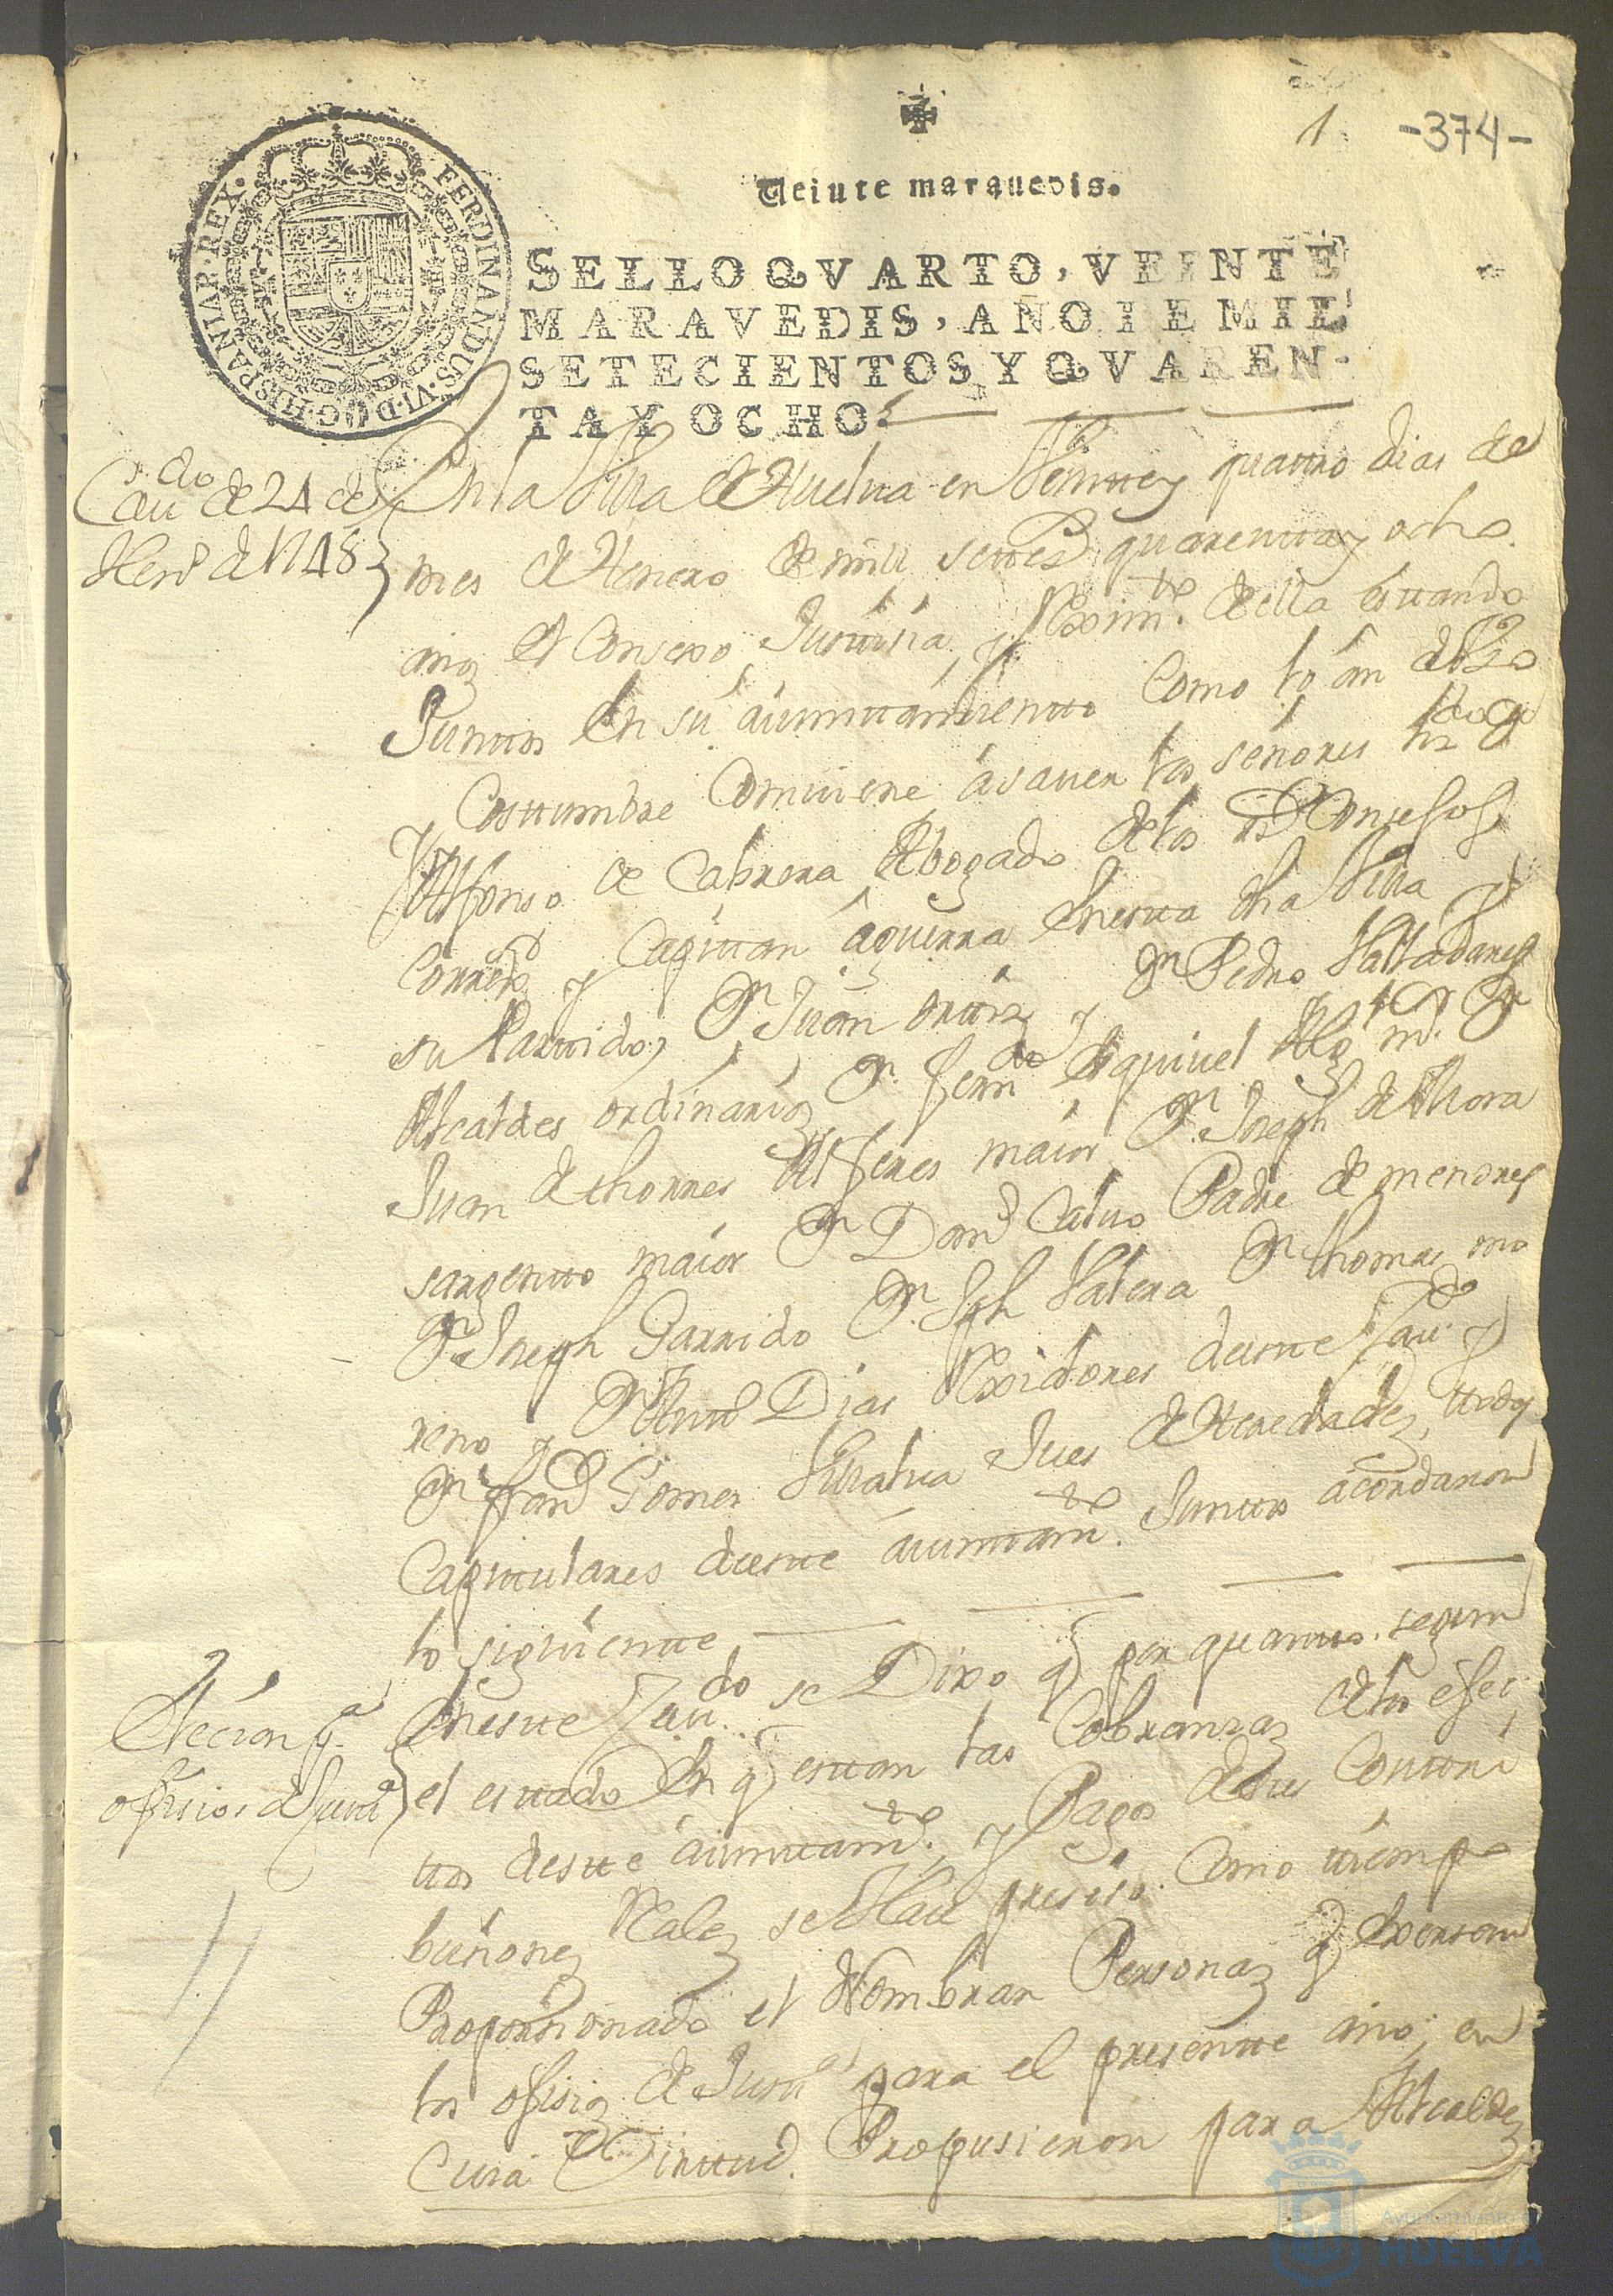 1 -374-
Veinte marauedis.
SELLO QVARTO, VEINTE
MARAVEDIS, AÑO DE MIL
SETECIENTOS Y QVAREN-
TA Y OCHO.
FERDINANDUS·VI·D·G·HISPANIAR·REX·
Caudo de 24 de
Hen.o de 1748
En la Villa de Huelua en Veinte y quatro dias del
mes de Henero de mill setes quarenta y ocho
años el Consexo, Justisia, y Reximto della estando
Juntos en su aiuntamiento como lo án de Uso
y Costumbre Combiene ásauer los señores
Alfonso de Cabrera Abogado delos Rs Consejos
Correxor y Capitan águerra enesta dha Villa y
su Partido, Dn Juan ortiz y Dn Pedro Valladares
Alcaldes ordinarios Dn Ferndo Esquivel Alg m.r Dn
Juan de thorres Alferes maior Dn Joseph de Mora
sargento maior Dn Dom.o Caluo Padre de menores
Dn Joseph Garrido Dn Jph Valera Dn thomas mo
reno y Dn Anto Dias Rexidores deeste Caudo y
Dn Franco Gomez Villalua Jues de Heredades, todos
Capitulares deeste áiuntamto Juntos acordaron
lo siguiente
Eleción pa
ofisios de Justa
Eneste Caudo se Dixo q por quanto segun
el estado En q estan las Cobranzas delos efec
tos deste áiuntamto y Pagos desus Contri
buciones Reales se Halla presiso como tiempo
Proporsionado el Nombrar Personas q exersan
los ofisios de Justa para el presente año, en
Cuia Virtud Propusieron para Alcaldes
Ayuntamiento de
HUELVA